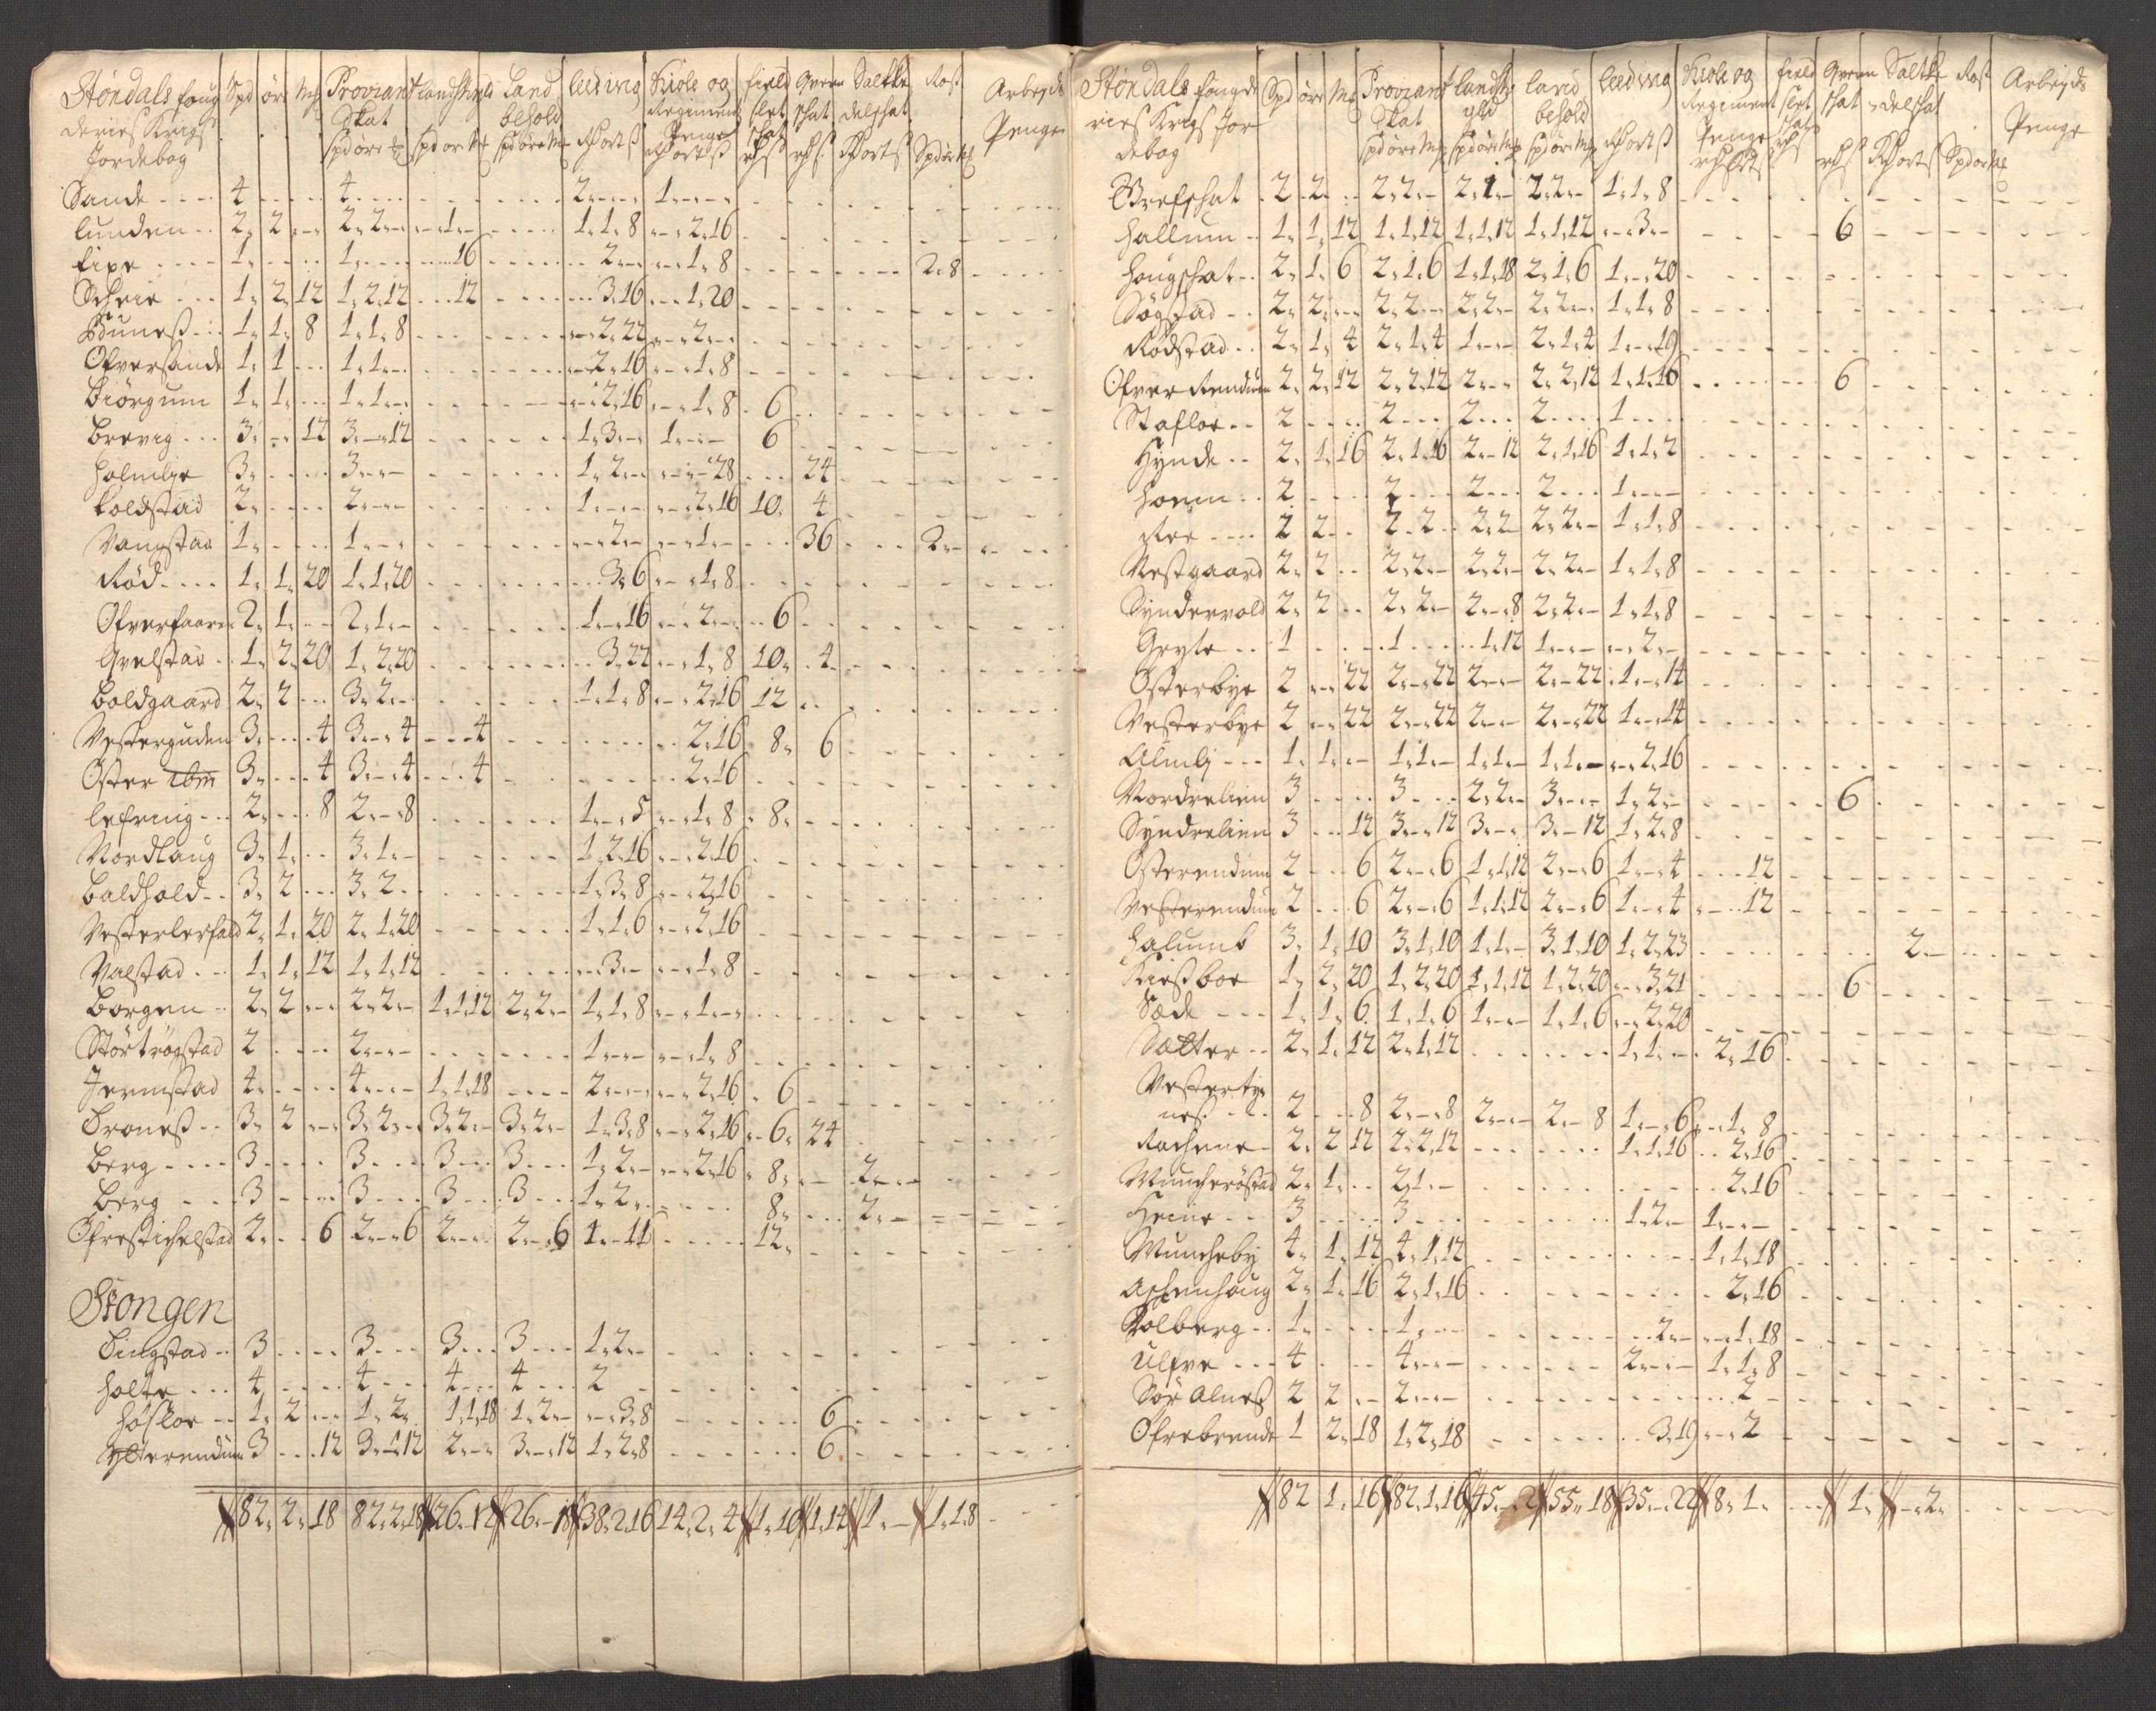 Størdals foug Spd øre Mꝶ Proviant Landskyld Land leeding Kiole og field Qvern Saltke Rost Arbejds
deries Krigs Skat behold Regiment slet skat delskat Penge
Jordebog Penge skat
Sande 4 4 2 1
Lunden 2 2 2 2 1 1 1 8 2 16
Eipe 1 1 16 2 1 8 2 8
Scheie 1 2 12 1 2 12 12 3 16 1 20
Buness 1 1 8 1 1 8 2 22 2
Ofversande 1 1 1 1 2 16 1 8
Biörgum 1 1 1 1 2 16 1 8 6
Brevig 3 12 3 12 1 3 1 6
Holmbye 3 3 1 2 28 24
Koldstad 2 2 1 2 16 10 4
Vangstad 1 1 2 1 36 2
Rød 1 1 20 1 1 20 3 6 1 8
Ofverfaaren 2 1 2 1 1 16 2 6
Qvelstad 1 2 20 1 2 20 3 22 1 8 10 4
Boldgaard 2 2 3 2 1 1 8 2 16 12
Vesterguden 3 4 3 4 4 2 16 8 6
Öster ibm 3 4 3 4 4 2 16
Lefring 2 8 2 8 1 5 1 8 8
Nordlaug 3 1 3 1 1 2 16 2 16
Baldhold 3 2 3 2 1 3 8 2 16
Vesterlerfald 2 1 20 2 1 20 1 1 6 2 16
Valstad 1 1 12 1 1 12 3 1 8
Borgen 2 2 2 2 1 1 12 2 2 1 1 8 1
Störtrögstad 2 2 1 1 8
Jermstad 4 4 1 1 18 2 2 16 6
Broness 3 2 3 2 3 2 3 2 1 3 8 2 16 6 24
Berg 3 3 3 3 1 2 2 16 8 2
Berg 3 3 3 3 1 2 8 2
Ofrestichelstad 2 6 2 6 2 2 6 1 11 12
Schongen
Bingstad 3 3 3 3 1 2
Holte 4 4 4 4 2
Høfloe 1 2 1 2 1 1 18 1 2 3 8 6
Ytterendum 3 12 3 12 2 3 12 1 2 8 6
82 2 18 82 2 18 26 12 26 18 38 2 16 14 2 4 1 10 1 14 1 1 1 8
Størdals fougde Spd øre Mꝶ Proviant Landsk land leeding Kiole og field Qvern Saltke Rost Arbejds
ries Krigs Jor Skat yld behold Regiment slet skat delskat Penge
debog Penge skat
Grefskat 2 2 2 2 2 1 2 2 1 1 8
Hallum 1 1 12 1 1 12 1 1 12 1 1 12 3 6
Hougskat 2 1 6 2 1 6 1 1 18 2 1 6 1 20
Søgstad 2 2 2 2 2 2 2 2 1 1 8
Rødstad 2 1 4 2 1 4 1 2 1 4 1 19
Ofver Rendum 2 2 12 2 2 12 2 2 2 12 1 1 16 6
Stafloe 2 2 2 2 1
Hynde 2 1 16 2 1 16 2 12 2 1 16 1 1 2
Hoem 2 2 2 2 1
Ree 2 2 2 2 2 2 2 2 1 1 8
Vestgaard 2 2 2 2 2 2 2 2 1 1 8
Syndervold 2 2 2 2 2 8 2 2 1 1 8
Gryte 1 1 1 12 1 2
Österbye 2 22 2 22 2 2 22 1 14
Vesterbye 2 22 2 22 2 2 22 1 14
Almlj 1 1 1 1 1 1 1 1 2 16
Nordrelien 3 3 2 2 3 1 2 6
Syndrelien 3 12 3 12 3 3 12 1 2 8
Österendum 2 6 2 6 1 1 12 2 6 1 4 12
Vesterendum 2 6 2 6 1 1 12 2 6 1 4 12
Halumb 3 1 10 3 1 10 1 1 3 1 10 1 2 23 2
Kirssboe 1 2 20 1 2 20 1 1 12 1 2 20 3 21 6
Sæde 1 1 6 1 1 6 1 1 1 6 2 20
Sætter 2 1 12 2 1 12 1 1 2 16
Vestertye
ness 2 8 2 8 2 2 8 1 6 1 8
Rochene 2 2 12 2 2 12 1 1 16 2 16
Muncherøstad 2 1 2 1 2 16
Heine 3 3 1 2 1
Muncheby 4 1 12 4 1 12 1 1 18
Aschenhoug 2 1 16 2 1 16 2 16
Volberg 1 1 2 1 18
Ulfve 4 4 2 1 1 8
Sör Alnes 2 2 2 2
Ofrebrende 1 2 18 1 2 18 3 19 2
82 1 16 82 1 16 45 2 55 18 35 22 8 1 1 2